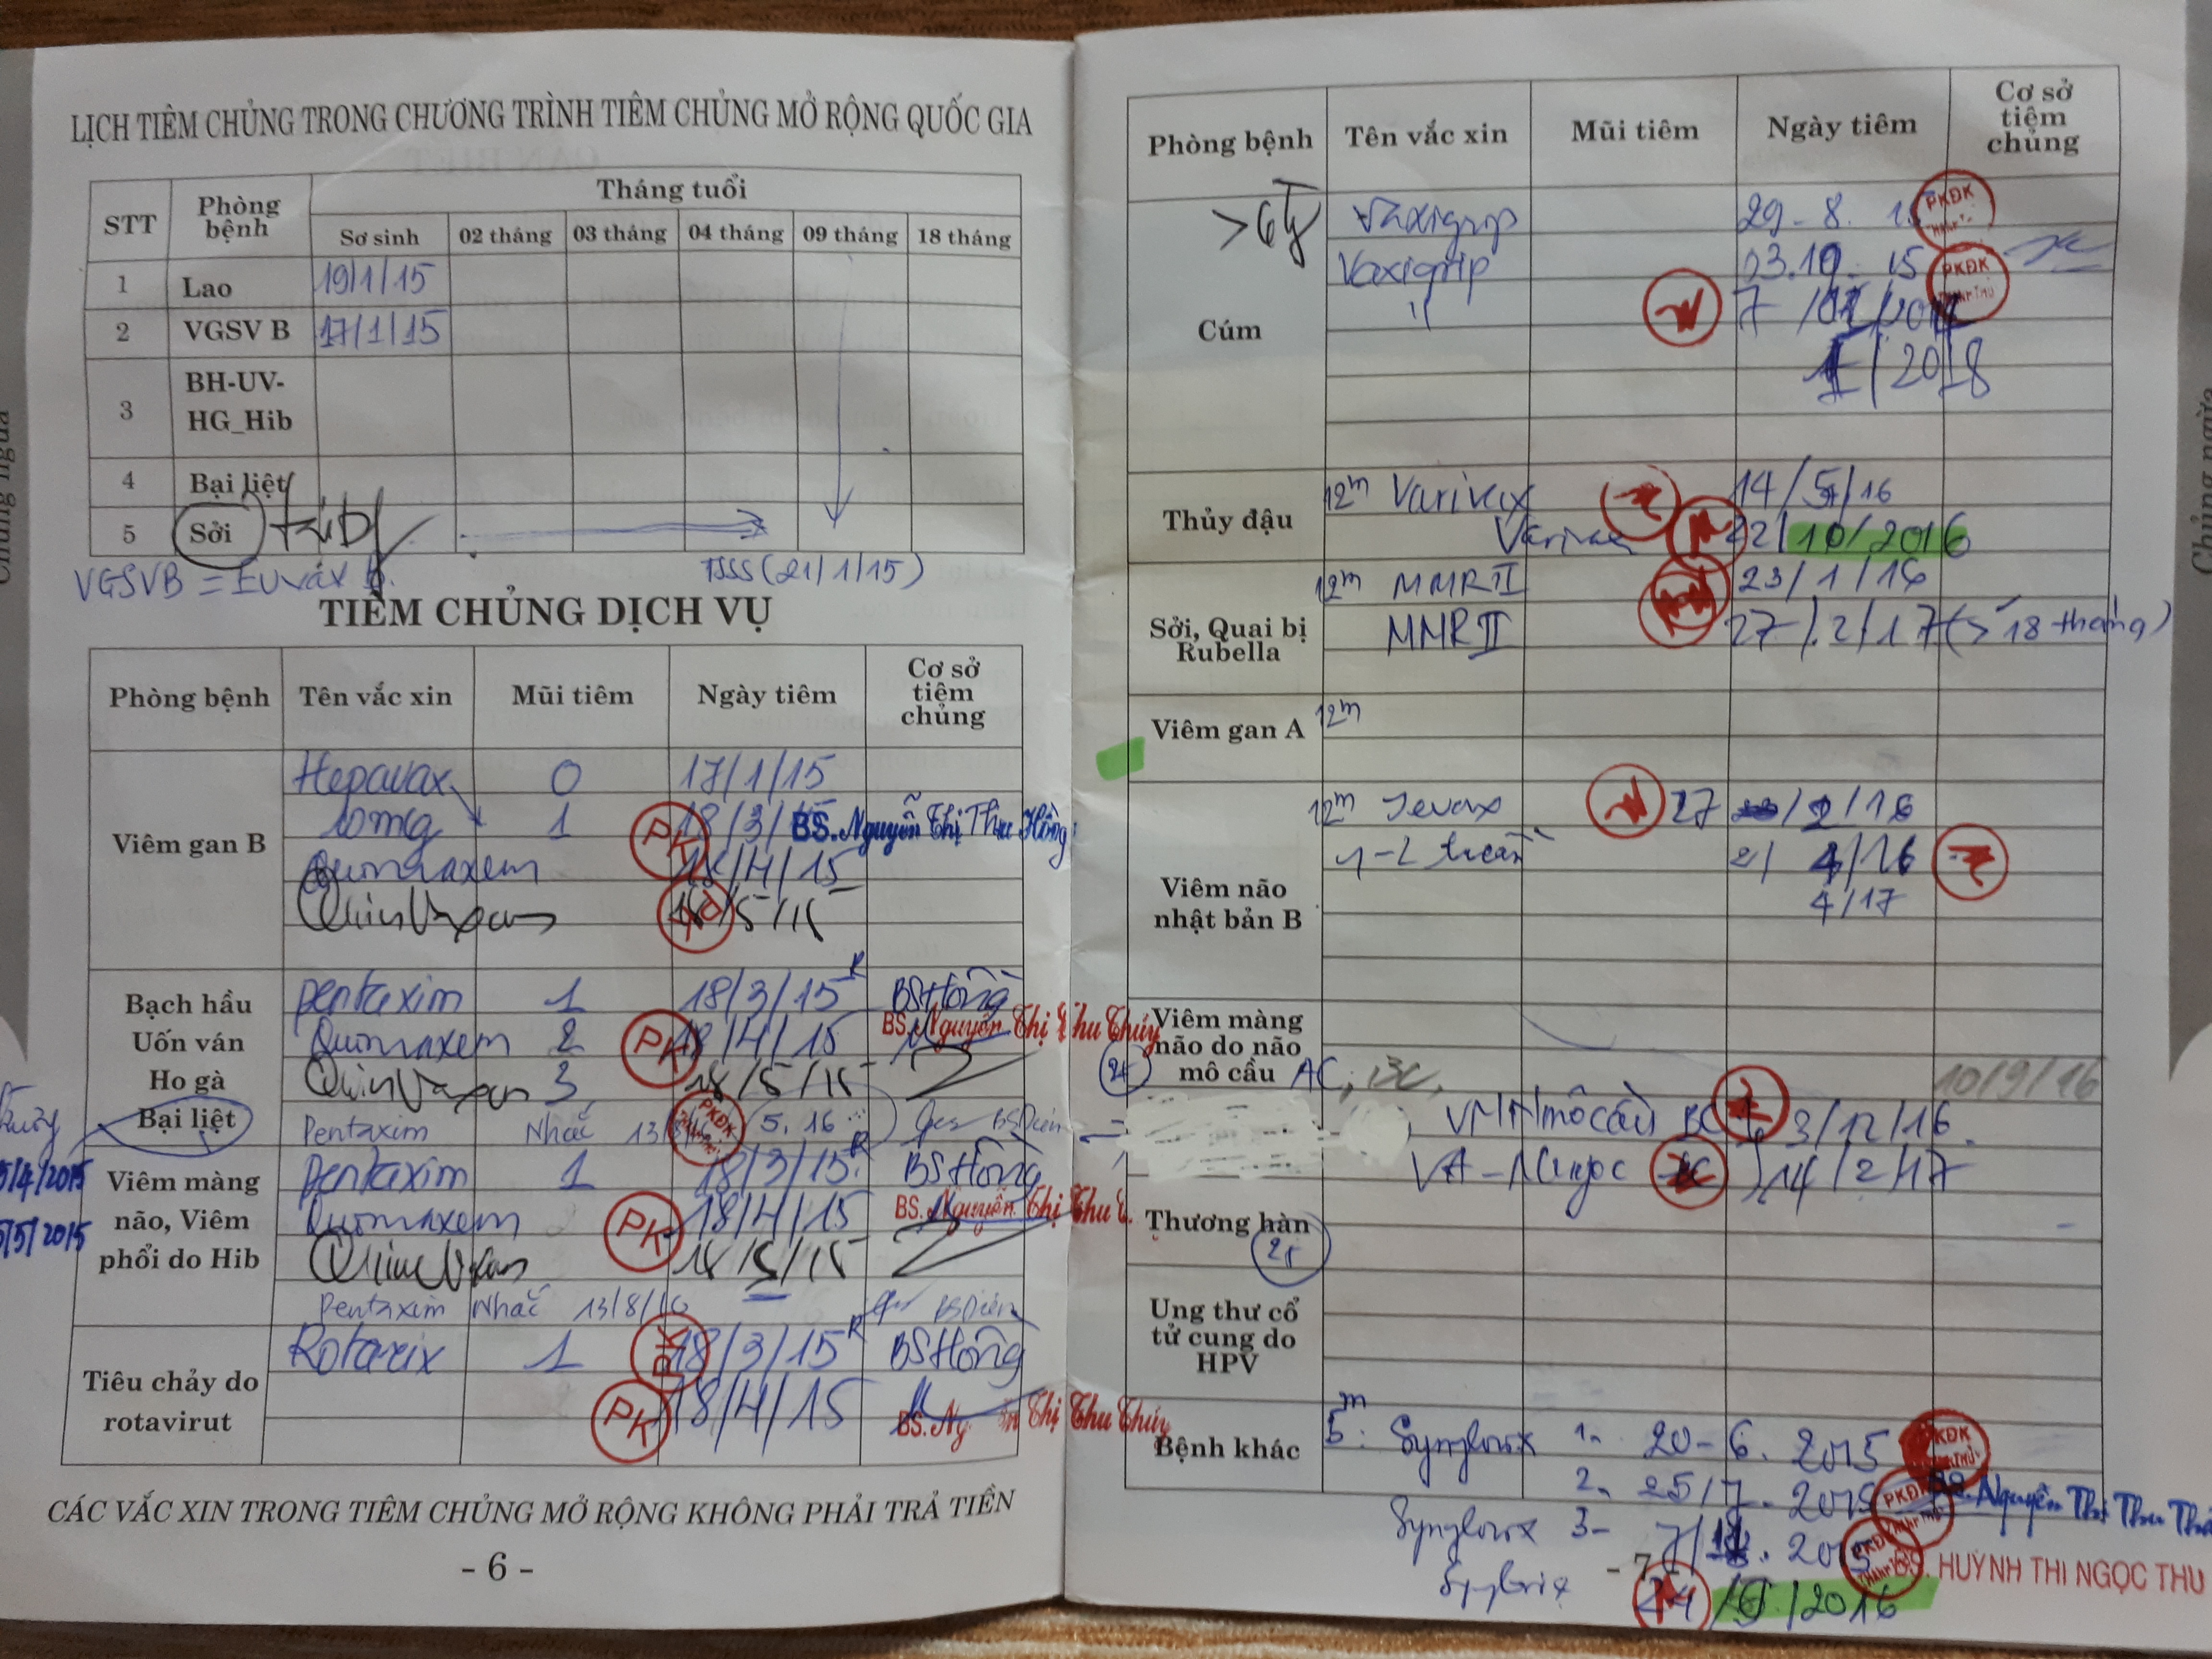 LỊCH TIÊM CHỦNG TRONG CHƯƠNG TRÌNH TIÊM CHỦNG MỞ RỘNG QUỐC GIA
STT Phòng bệnh Tháng tuổi
Sơ sinh 02 tháng 03 tháng 04 tháng 09 tháng 18 tháng
1 Lao 19/1/15
2 VGSV B 17/1/15
3 BH-UV-HG_Hib
4 Bại liệt
5 Sởi
VGSVB = Euvax B. TSSS (21/1/15)
TIÊM CHỦNG DỊCH VỤ
Phòng bệnh Tên vắc xin Mũi tiêm Ngày tiêm Cơ sở tiêm chủng
Viêm gan B
Hepavax 0 17/1/15
10mg 1 18/3/15 BS. Nguyễn Thị Thu Hồng
Quinvaxem 18/4/15
Quinvaxem 18/5/15
Bạch hầu Uốn ván Ho gà Bại liệt
Pentaxim 1 18/3/15 BSHồng
Quinvaxem 2 18/4/15 BS. Nguyễn Thị Thu Thủy
Quinvaxem 3 18/5/15
Pentaxim Nhắc 5.16
5/4/2015
5/5/2015
Viêm màng não, Viêm phổi do Hib
Pentaxim 1 18/3/15 BSHồng
Quinvaxem 2 18/4/15 BS. Nguyễn Thị Thu
Quinvaxem 18/5/15
Pentaxim Nhắc 13/8/16
Tiêu chảy do rotavirut
Rotarix 1 18/3/15 BSHồng
18/4/15 Thị Thu Thủy
CÁC VẮC XIN TRONG TIÊM CHỦNG MỞ RỘNG KHÔNG PHẢI TRẢ TIỀN
- 6 -
Phòng bệnh Tên vắc xin Mũi tiêm Ngày tiêm Cơ sở tiêm chủng
Cúm
Vaxigrip 29-8. PKĐK
Vaxigrip 03.10.15 PKĐK
7
/2018
Thủy đậu
12m Varivax 14/5/16
Varivax 22/10/2016
Sởi, Quai bị Rubella
12m MMR II 23/1/16
MMR II 27/2/17 (> 18 tháng)
Viêm gan A 12m
Viêm não nhật bản B
12m Jevax 27/2/16
1-2 tuần 4/16
4/17
Viêm màng não do não mô cầu AC, BC,
10/9/16
VMN mô cầu BC 3/12/16
14/2/17
Thương hàn
Ung thư cổ tử cung do HPV
Bệnh khác
5m: Synflorix 1- 20-6.2015
2- 25/7.2015 BS. Nguyễn Thị Thu
Synflorix 3- 7/ 2015
- 7 -
BS. HUỲNH THI NGỌC THU
Synflorix 24/ /2016
Chủng ngừa